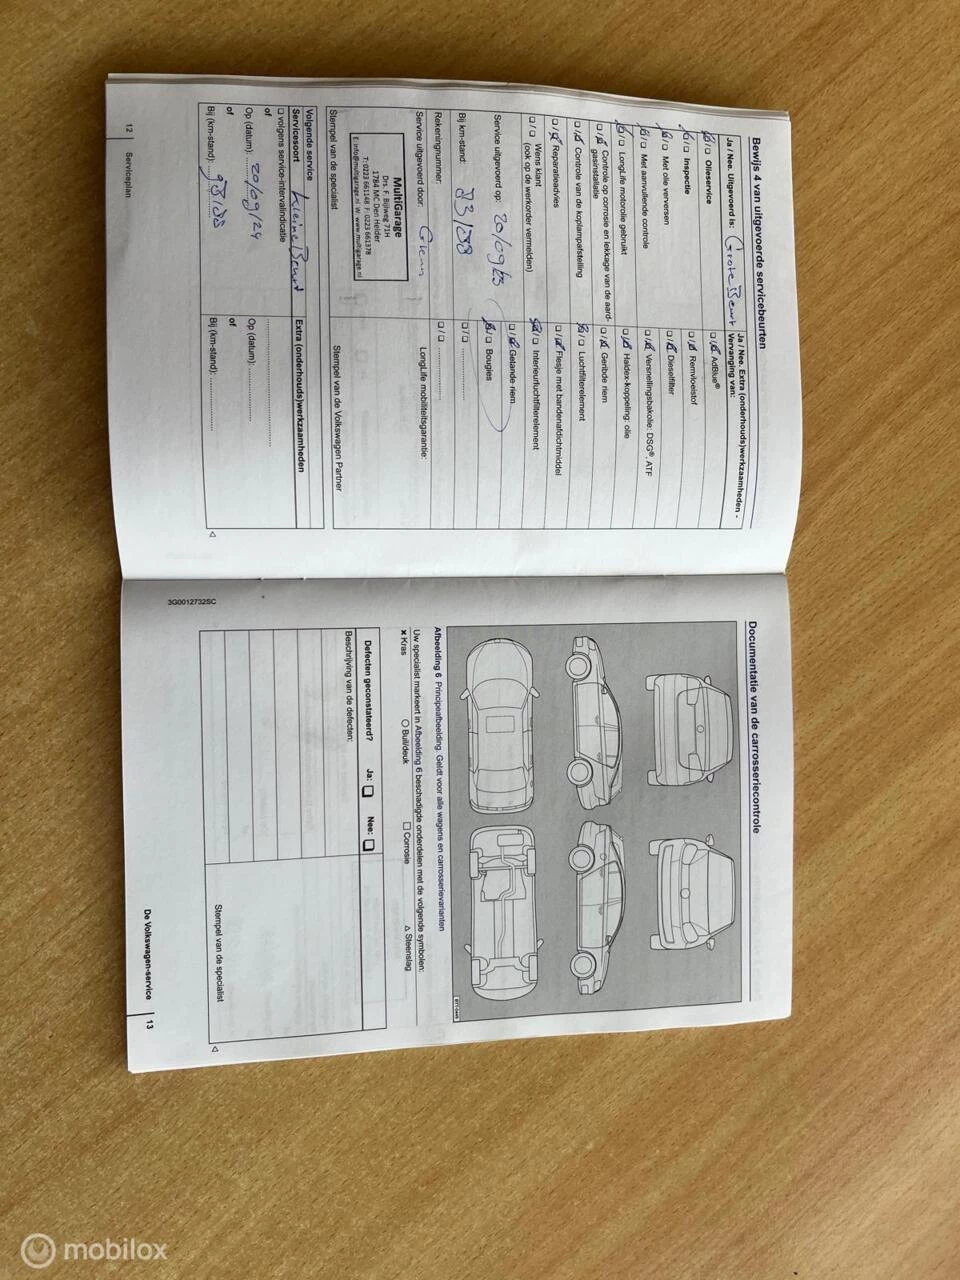 Bewijs 4 van uitgevoerde servicebeurten
Ja / Nee. Uitgevoerd is: Grote Beurt
Ja / Nee. Extra (onderhouds)werkzaamheden - Vervanging van:
Olieservice
AdBlue®
Inspectie
Remvloeistof
Met olie verversen
Dieselfilter
Met aanvullende controle
Versnellingsbakolie: DSG®, ATF
LongLife motorolie gebruikt
Haldex-koppeling: olie
Controle op corrosie en lekkage van de aard-
gasinstallatie
Geribde riem
Controle van de koplampafstelling
Luchtfilterelement
Reparatieadvies
Flesje met bandenafdichtmiddel
Wens klant
(ook op de werkorder vermelden)
Interieurluchtfilterelement
Getande riem
Service uitgevoerd op: 20/09/23
Bougies
Bij km-stand:
Rekeningnummer:
Service uitgevoerd door: Glenn
LongLife mobiliteitsgarantie:
MultiGarage
Drs. F. Bijlweg 71H
1784 MC Den Helder
T: 0223 661148 F: 0223 661378
E: info@multigarage.nl W: www.multigarage.nl
Stempel van de specialist
Stempel van de Volkswagen Partner
Volgende service
Servicesoort Kleine Beurt
Extra (onderhouds)werkzaamheden
volgens service-intervalindicatie
of
Op (datum): 20/09/24
Op (datum):
of
of
Bij (km-stand):
Bij (km-stand):
12 Serviceplan
Documentatie van de carrosseriecontrole
Afbeelding 6 Principeafbeelding. Geldt voor alle wagens en carrosserievarianten
Uw specialist markeert in Afbeelding 6 beschadigde onderdelen met de volgende symbolen:
× Kras ○ Buil/deuk □ Corrosie △ Steenslag
Defecten geconstateerd? Ja: Nee:
Beschrijving van de defecten:
Stempel van de specialist
3G0012732SC
De Volkswagen-service 13
mobilox